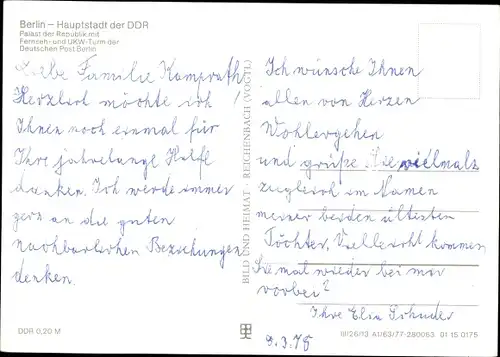 Berlin – Hauptstadt der DDR
Palast der Republik mit
Fernseh- und UKW-Turm der
Deutschen Post Berlin
Liebe Familie Kamprath!
Herzlich möchte ich
Ihnen noch einmal für
Ihre jahrelange Hilfe
danken. Ich werde immer
gern an die guten
nachbarlichen Beziehungen
denken.
DDR 0,20 M
BILD UND HEIMAT · REICHENBACH (VOGTL)
Ich wünsche Ihnen
allen von Herzen
Wohlergehen
und grüße Sie vielmals
zugleich im Namen
meiner beiden ältesten
Töchter. Vielleicht kommen
Sie mal wieder bei mir
vorbei?
Ihre Elia
9.3.78
III/26/13 A1/63/77-280063 01 15 0175